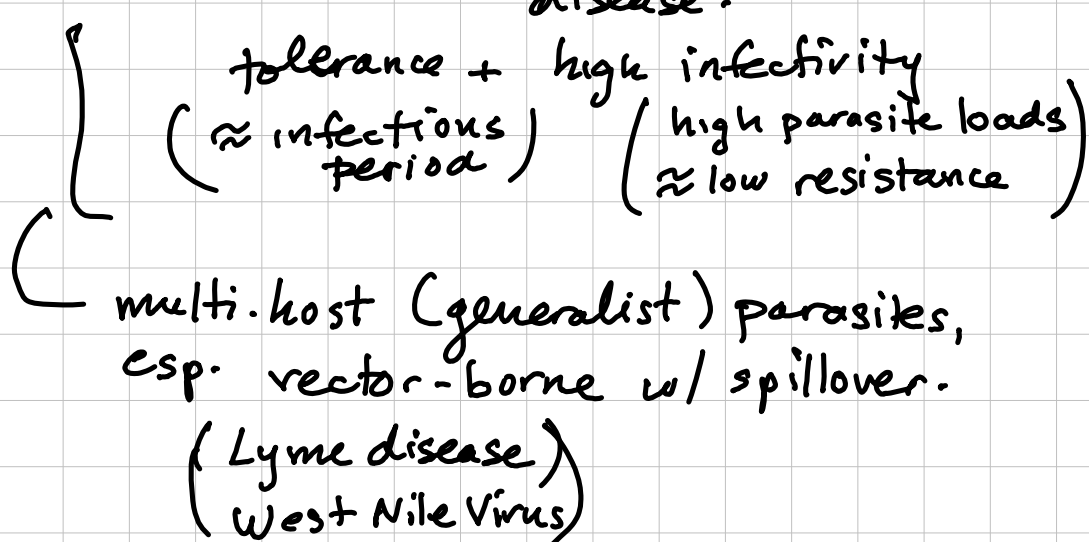 disease.
tolerance + high infectivity
(≈ infectious period) (high parasite loads ≈ low resistance)
multi-host (generalist) parasites,
esp. vector-borne w/ spillover.
(Lyme disease
West Nile Virus)